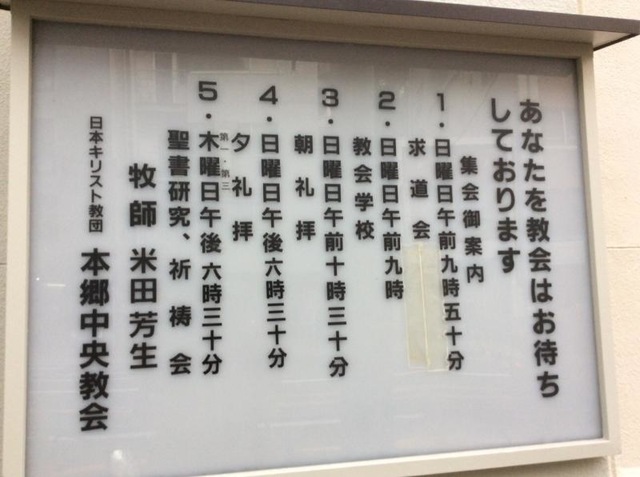 あなたを教会はお待ち
しております
集会御案内
1・日曜日午前九時五十分
求道会
2・日曜日午前九時
教会学校
3・日曜日午前十時三十分
朝礼拝
4・日曜日午後六時三十分
夕礼拝
第一・第三
5・木曜日午後六時三十分
聖書研究、祈祷会
牧師 米田芳生
日本キリスト教団 本郷中央教会